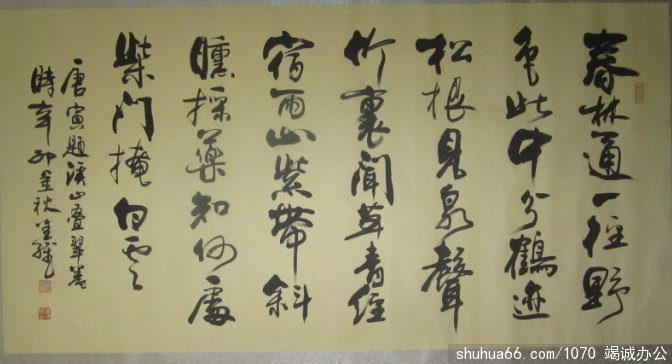 春林通一径野
色此中分鶴迹
松根見泉聲
竹裏聞草青經
宿雨山紫帶斜
曛採藥知何處
柴門掩白雲
唐寅題溪山叠翠卷
時辛卯金秋
shuhua66.com/1070 竭诚办公